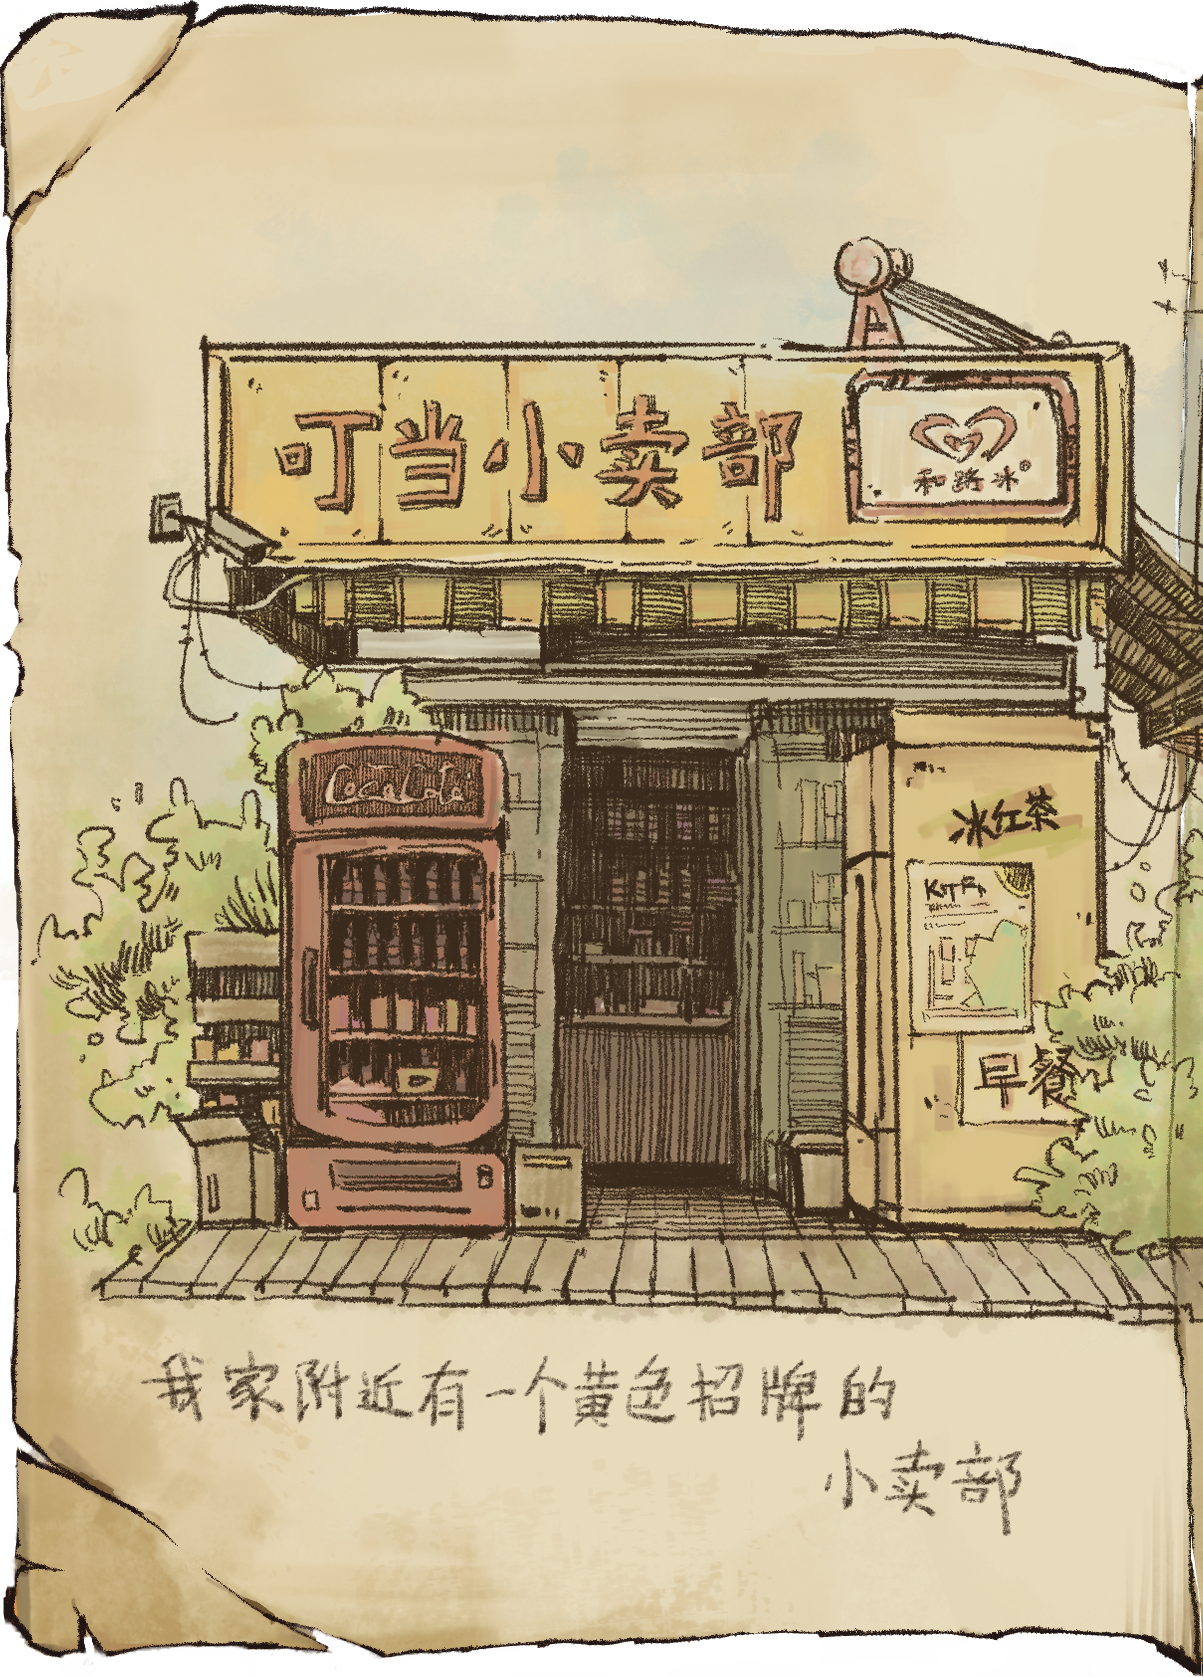 叮当小卖部
和路冰
CocaCola
冰红茶
早餐
我家附近有一个黄色招牌的
小卖部